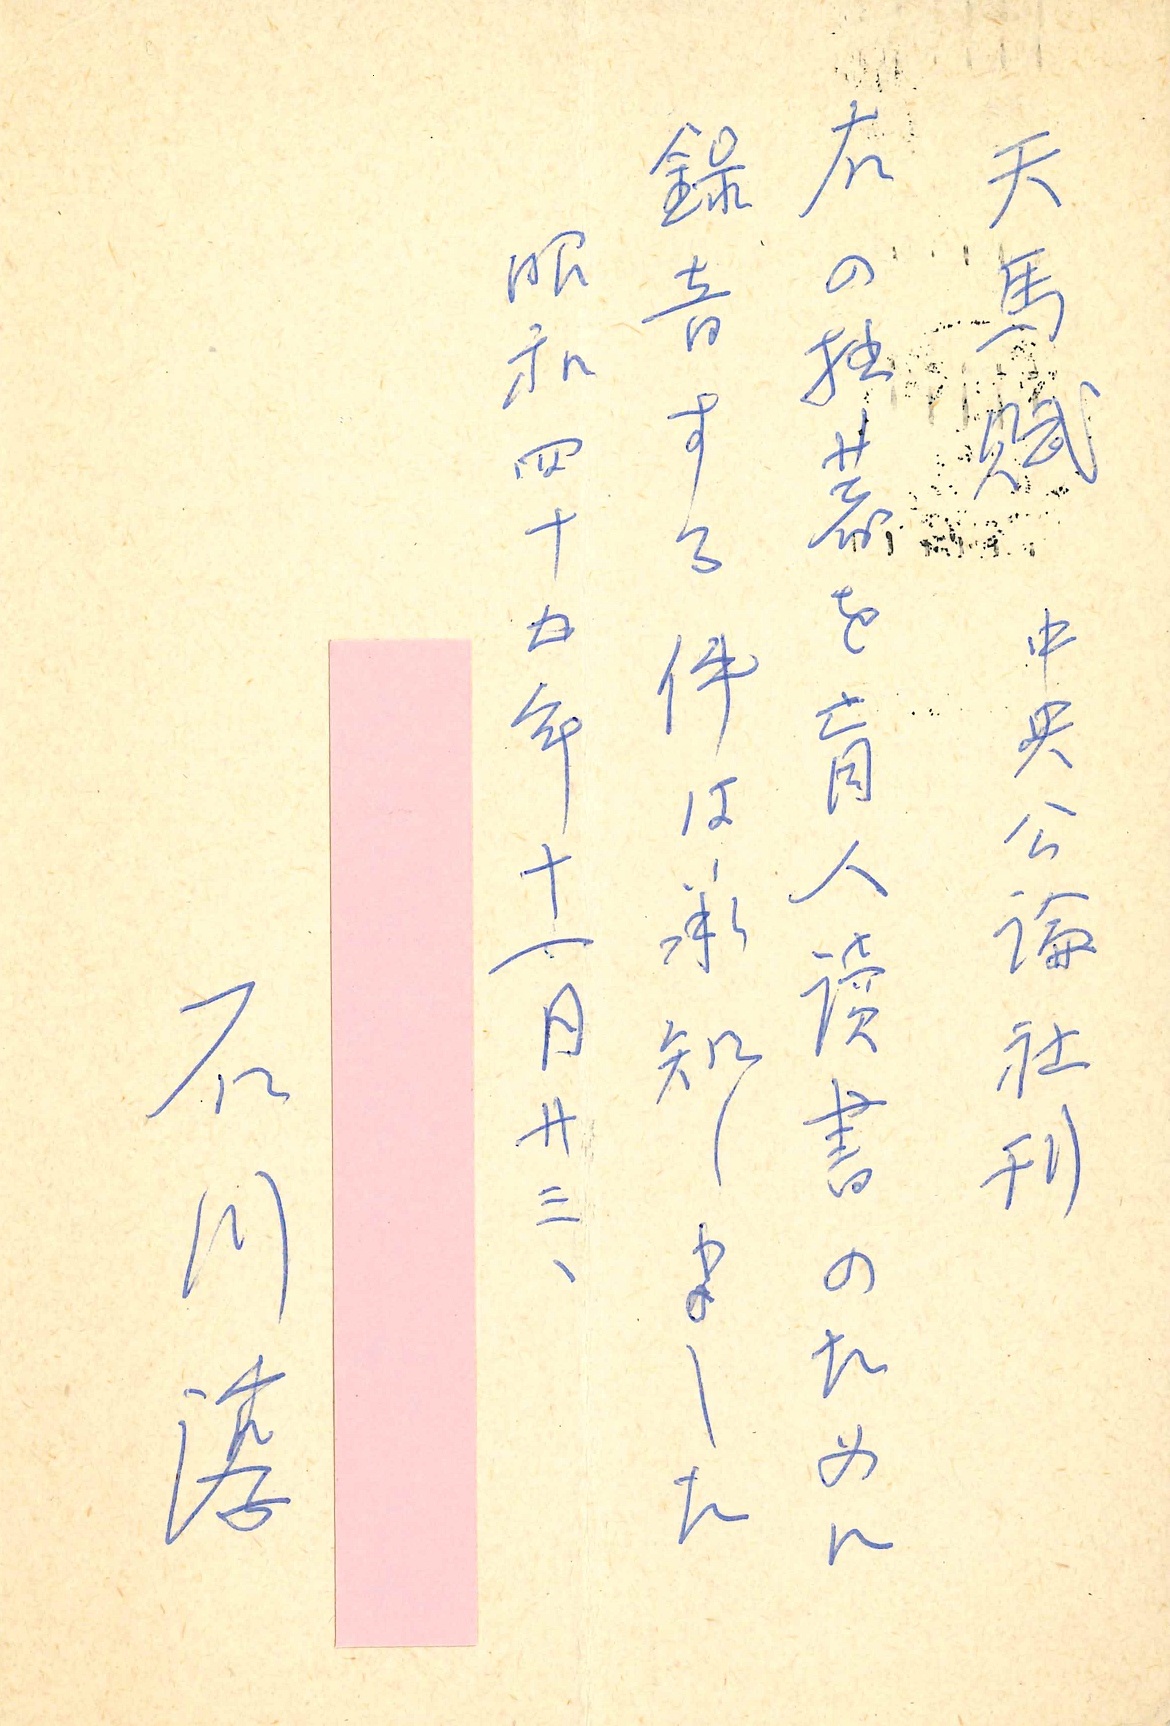 天馬賦 中央公論社刊
右の拙著を盲人読書のために
録音する件は承知しました
昭和四十五年十一月廿三、
石川淳